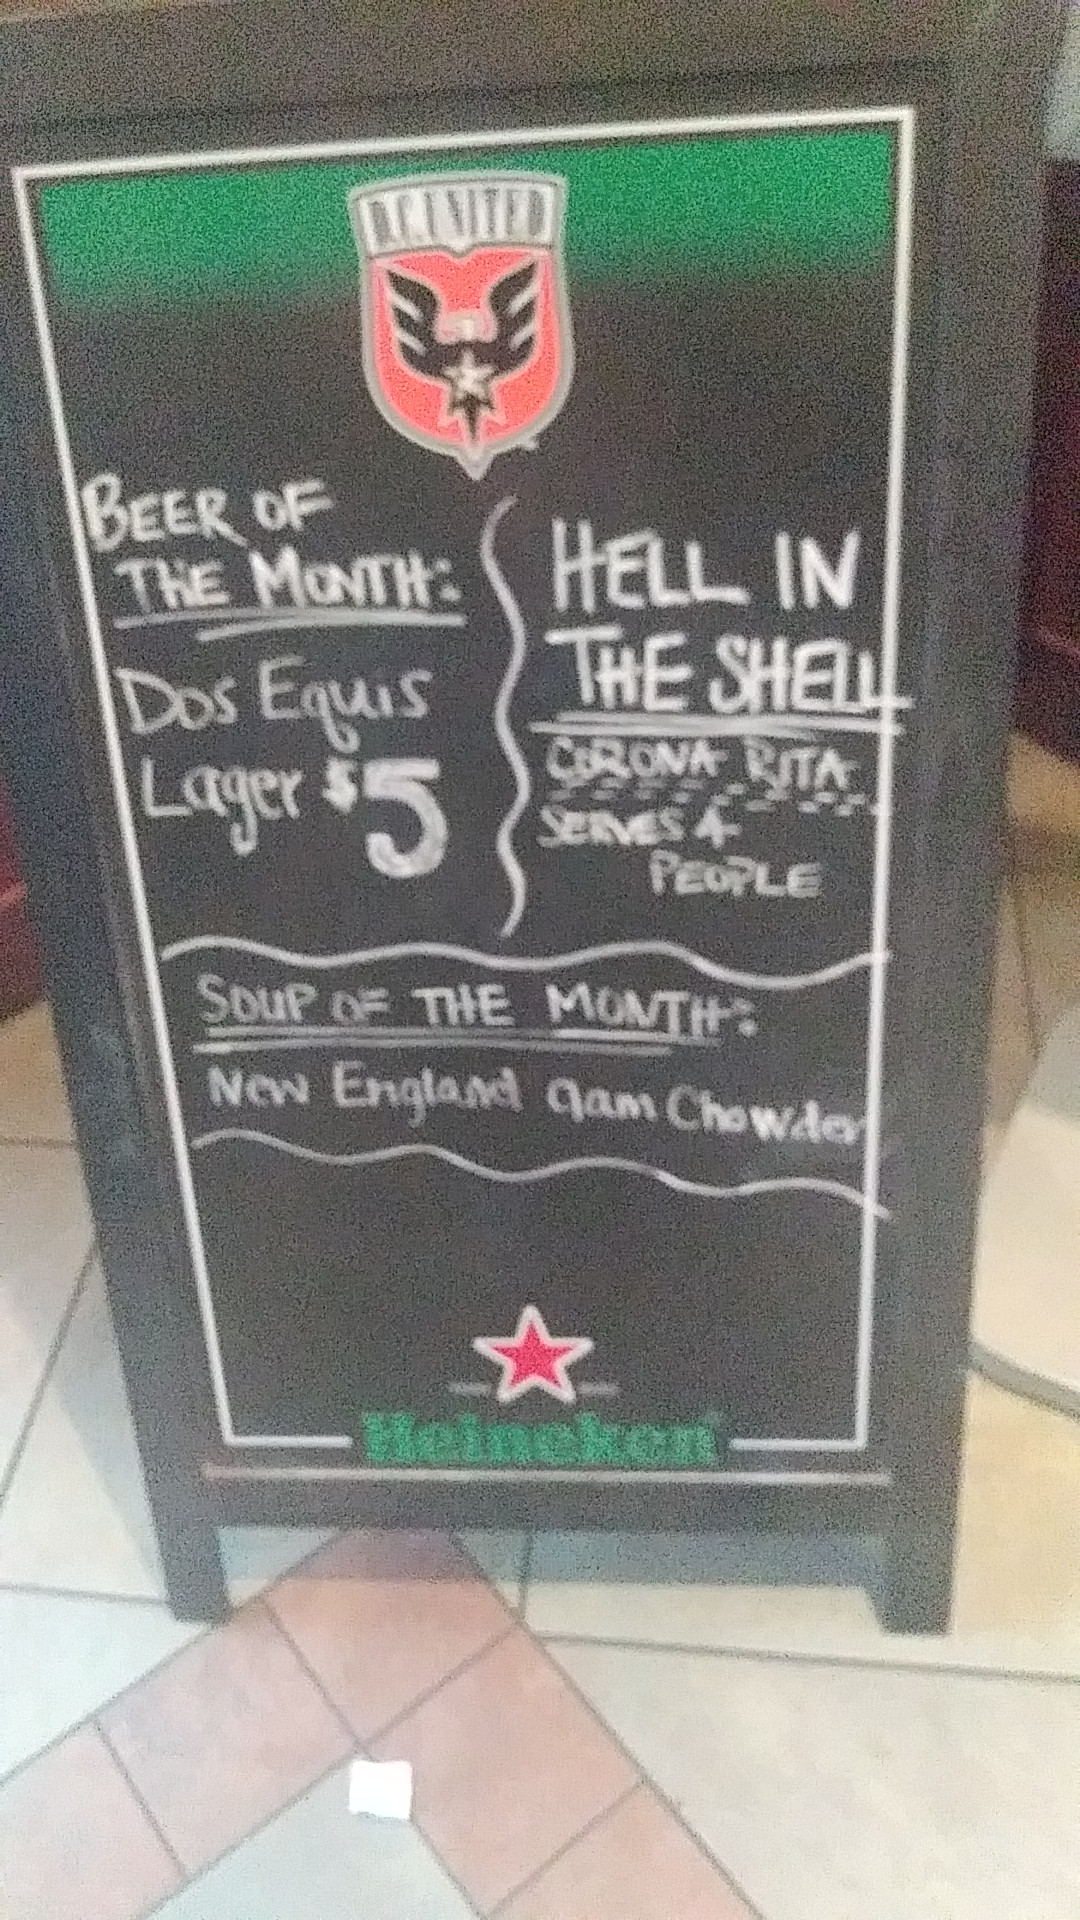 D.C. UNITED
BEER OF
THE MONTH:
Dos Equis
Lager $5
HELL IN
THE SHELL
CORONA RITA
SERVES 4
PEOPLE
SOUP OF THE MONTH:
New England qam Chowder
Heineken